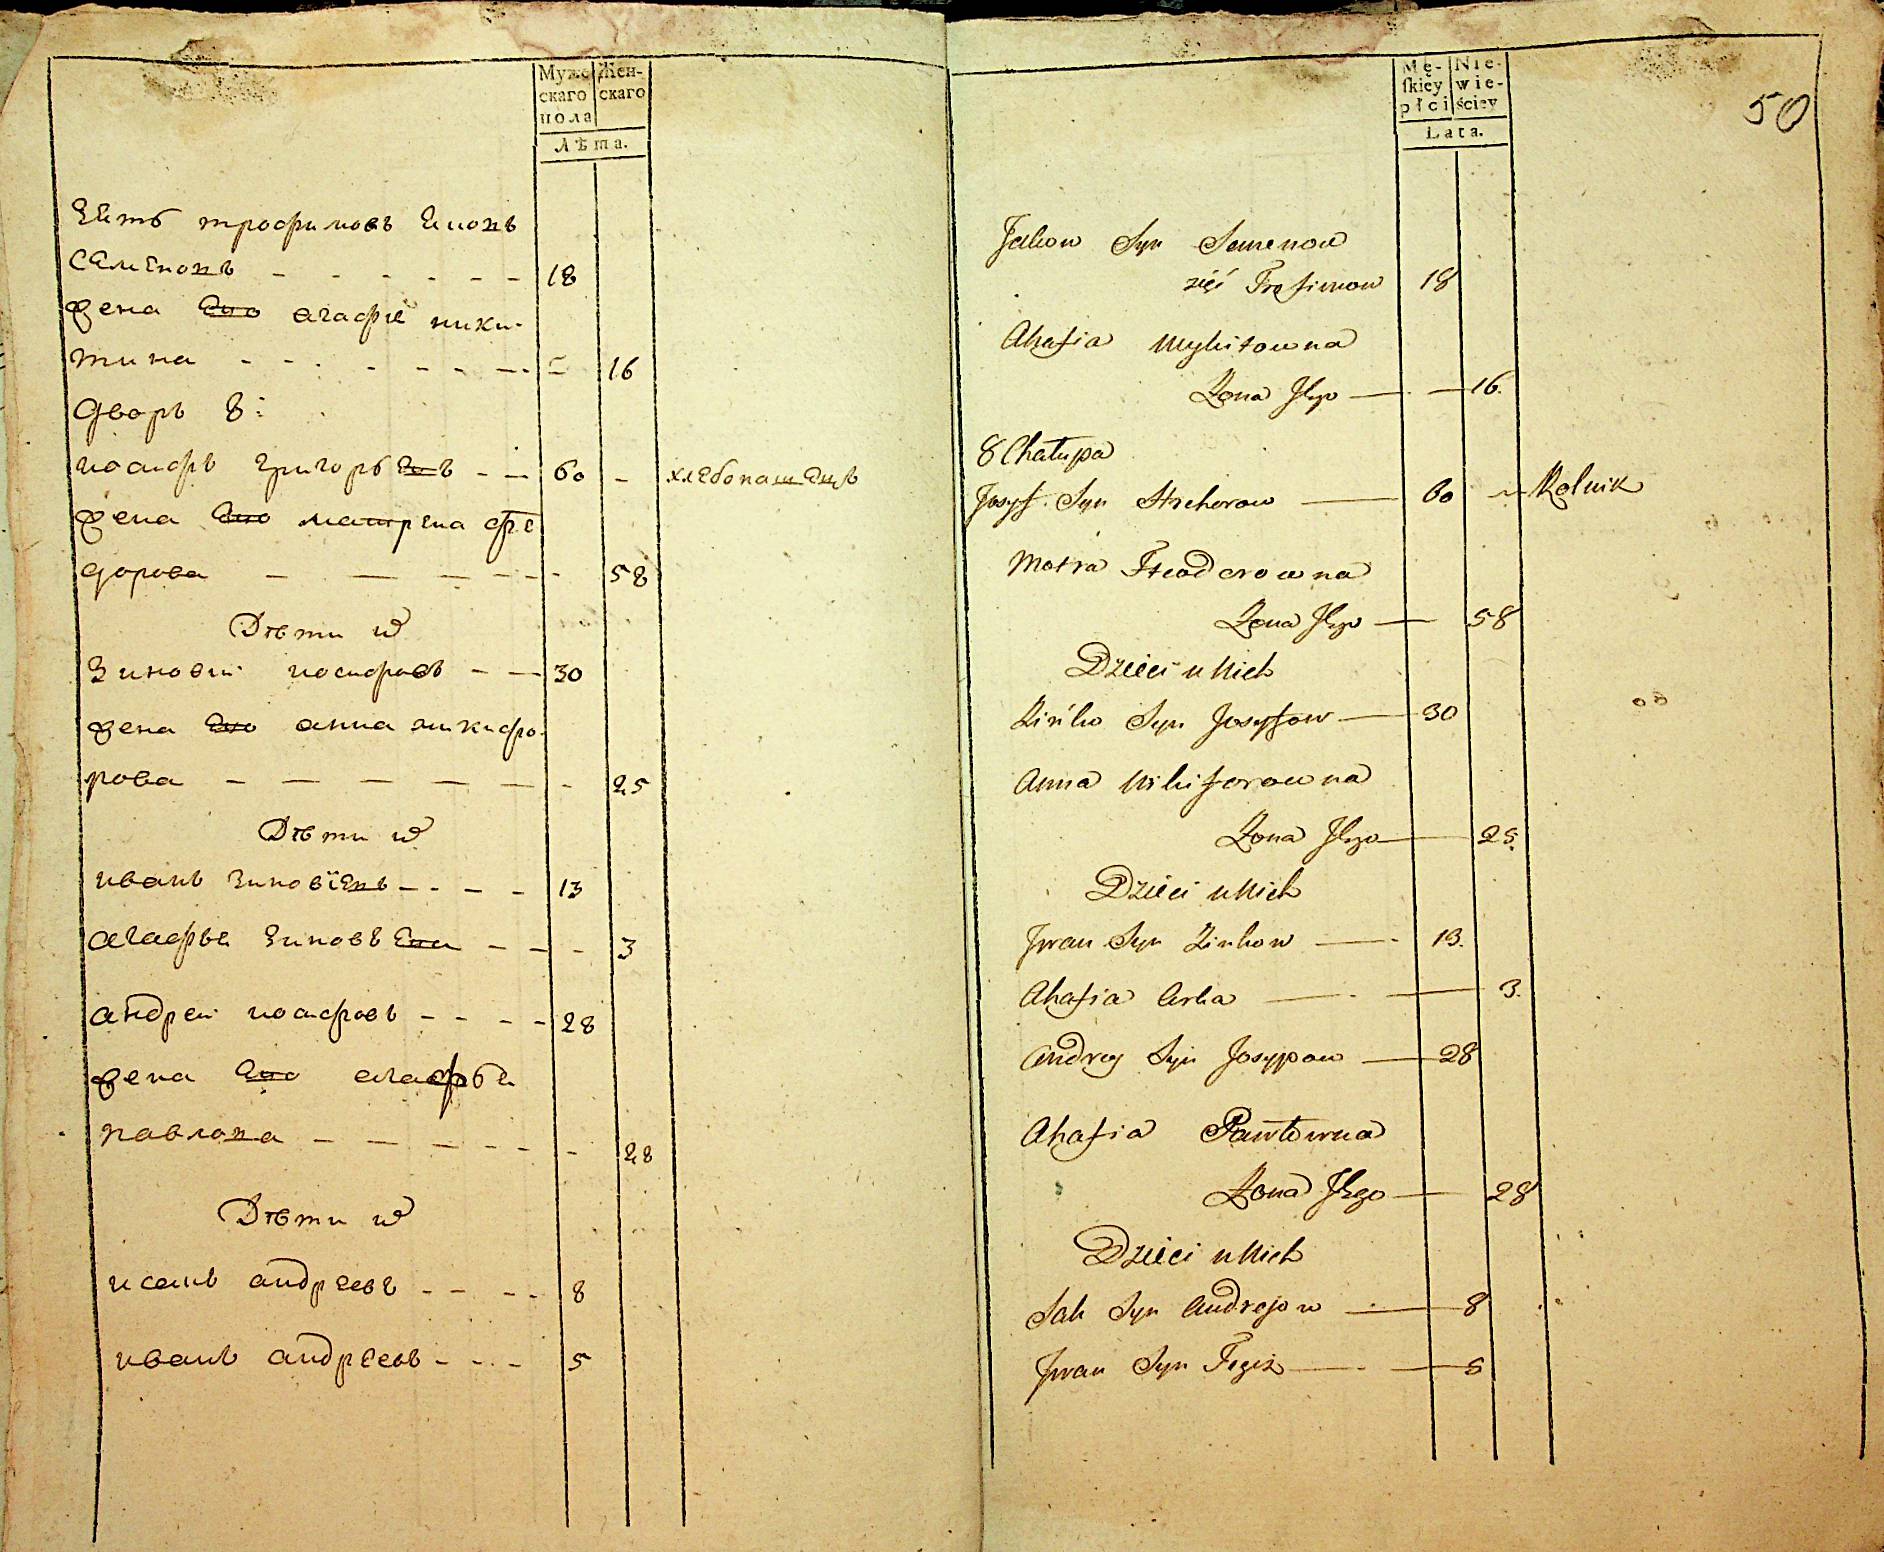 Муже Жен-
скаго скаго
пола
Лѣта.
зять трофимовъ
18
жена его агафия ники-
тина - - - - - - - - 16
дворъ 8:
иосифъ григорьевъ - - 60 - хлебопашецъ
жена его матрена фе
дорова - - - - - - 58
Дѣти их
Зиновий иосифовъ - - 30
жена его анна никифо-
рова - - - - - - 25
Дѣти их
иванъ зиновїевъ - - - - 13
агафья зиновьева - - - 3
андреи иосифовъ - - - - 28
жена его агафья
павлова - - - - - - 28
Дѣти их
исакъ андреевъ - - - - 8
иванъ андреевъ - - - - 5
Mę- Nie-
skiey wie-
płci ściey
Lata.
50
Jakow Syn Semenow
zięć Trofimow 18
Ahafia Mykitowna
Żona Jego — — 16.
8 Chałupa
Josyf Syn Hrehorow — 60 — Rolnik
Motra Fteodorowna
Żona Jego — 58
Dzieci u Nich
Zińko Syn Josyfow — 30
Anna Nikiforowna
Żona Jego — 25.
Dzieci u Nich
Jwan Syn Zinkow — 13.
Ahafia Corka — — 3.
Andrey Syn Josypow — 28
Ahafia Pawłowna
Żona Jego — 28
Dzieci u Nich
Sak Syn Andrejow — 8
Jwan Syn Tegoż — — 5